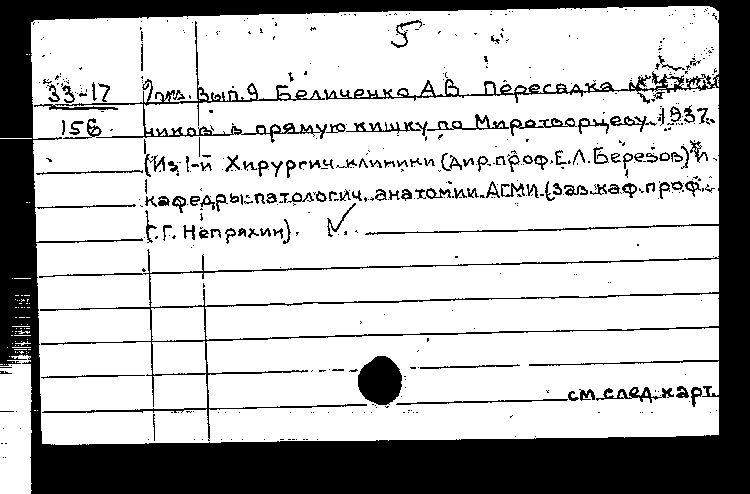 5
33-17 Прил. Вып. 9 Беличенко, А.В. Пересадка мочеточ-
156 ников в прямую кишку по Миротворцеву. 1937.
(Из 1-й Хирургич. клиники (дир. проф. Е.Л. Березов) и
кафедры патологич. анатомии АГМИ (зав. каф. проф.
Г.Г. Непряхин).
см. след. карт.